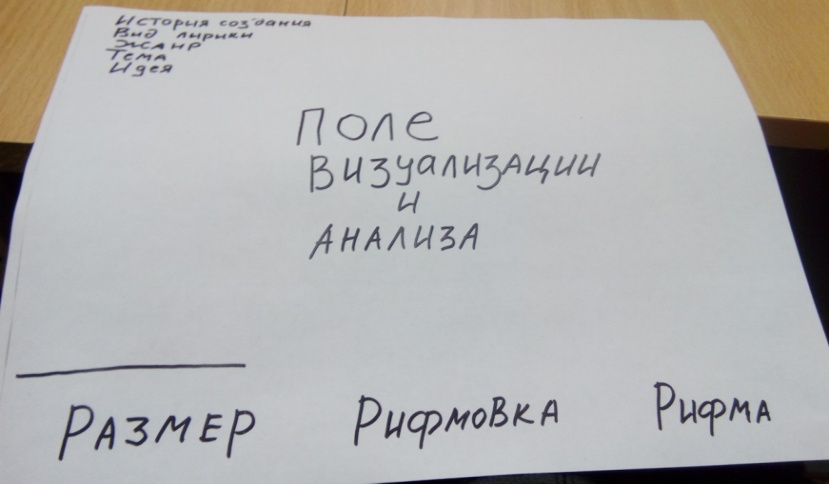 История создания
Вид лирики
Жанр
Тема
Идея
Поле
визуализации
и
анализа
Размер Рифмовка Рифма